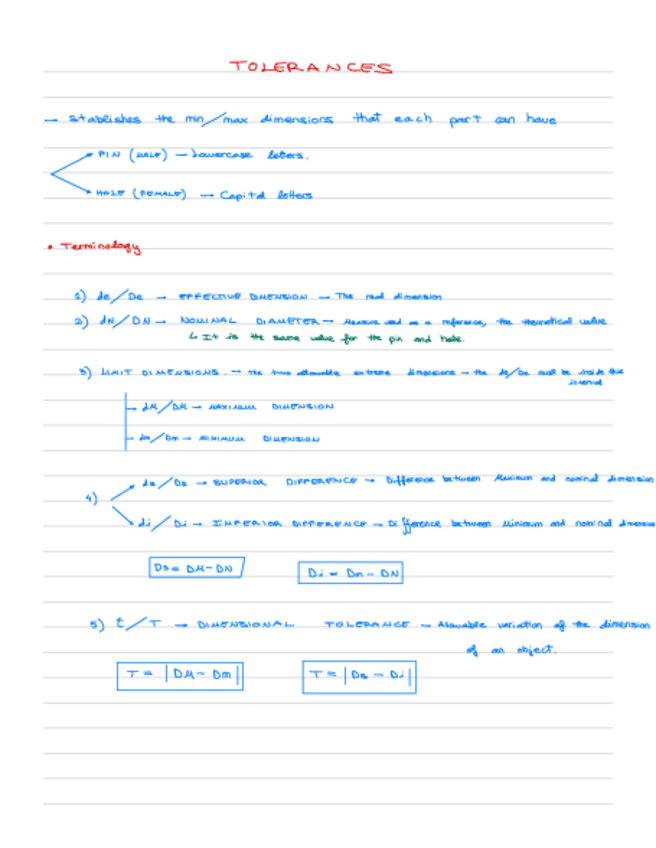 TOLERANCES
→ stablishes the min/max dimensions that each part can have
PIN (MALE) → Lowercase letters.
HOLE (FEMALE) → Capital letters
• Terminology
1) de/De → EFFECTIVE DIMENSION → The real dimension
2) dN/DN → NOMINAL DIAMETER → Measure used as a reference, the theoretical value
↳ It is the same value for the pin and hole.
3) LIMIT DIMENSIONS. → The two allowable extreme dimensions → the de/De must be inside this
interval
dM/DM → MAXIMUM DIMENSION
dm/Dm → MINIMUM DIMENSION
4)
ds/Ds → SUPERIOR DIFFERENCE → Difference between Maximum and nominal dimension
di/Di → INFERIOR DIFFERENCE → Difference between Minimum and nominal dimension
Ds = DM - DN
Di = Dm - DN
5) t/T → DIMENSIONAL TOLERANCE → Allowable variation of the dimension
of an object.
T = |DM - Dm|
T = |Ds - Di|